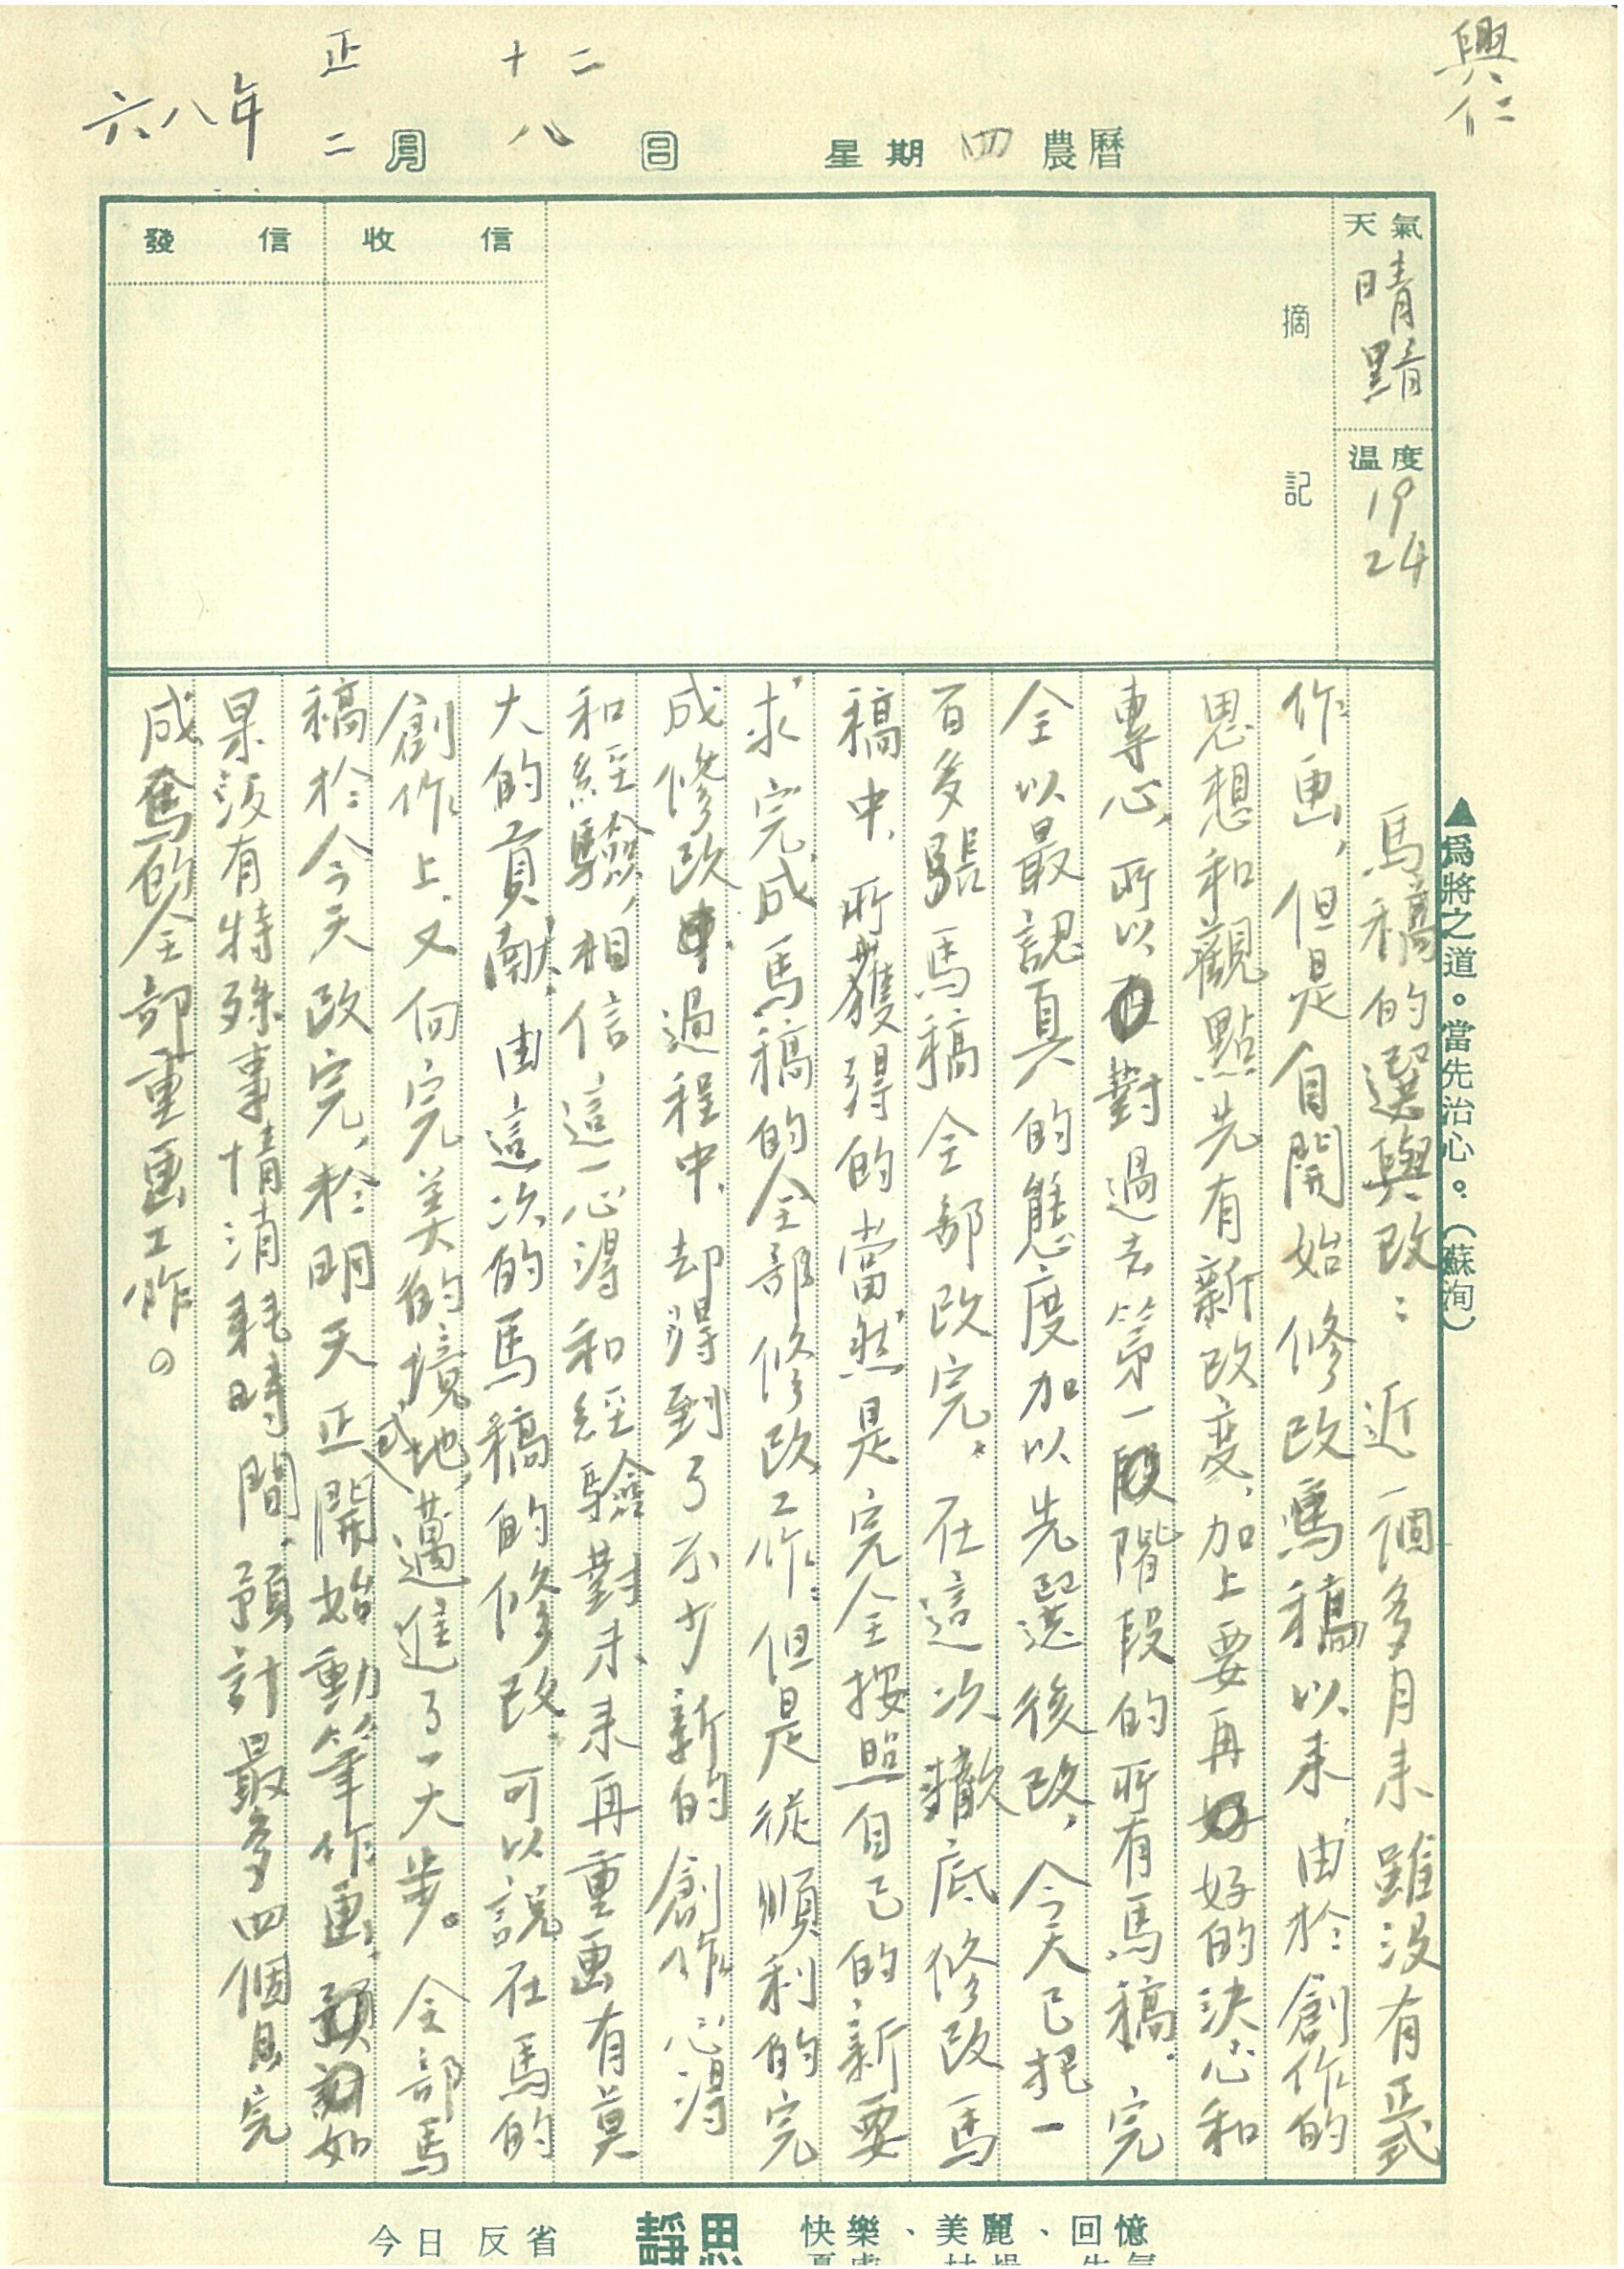 興仁
六八年 正二月 十二八日 星期四 農曆
天氣 晴 黯
温度 19 24
摘記
收信
發信
▲爲將之道。當先治心。（蘇洵）
馬稿的選與改：近一個多月來雖沒有正式
作畫，但是自開始修改馬稿以來，由於創作的
思想和觀點先有新改變，加上要再好好的決心和
專心，所以對過去第一段階段的所有馬稿，完
全以最認真的態度加以先選後改，今天已把一
百多張馬稿全部改完。在這次轍底修改馬
稿中，所獲得的當然是完全按照自己的新要
求完成馬稿的全部修改工作，但是從順利的完
成修改過程中，却得到了不少新的創作心得
和經驗，相信這一心得和經驗對未來再重畫有莫
大的貢献，由這次的馬稿的修改，可以說在馬的
創作上，又向完美的境地，邁進了一大步。全部馬
稿於今天改完，於明天正式開始動筆作畫，如
果沒有特殊事情消耗時間，預計最多四個月完
成奮的全部重畫工作。
今日反省
靜思
快樂、美麗、回憶